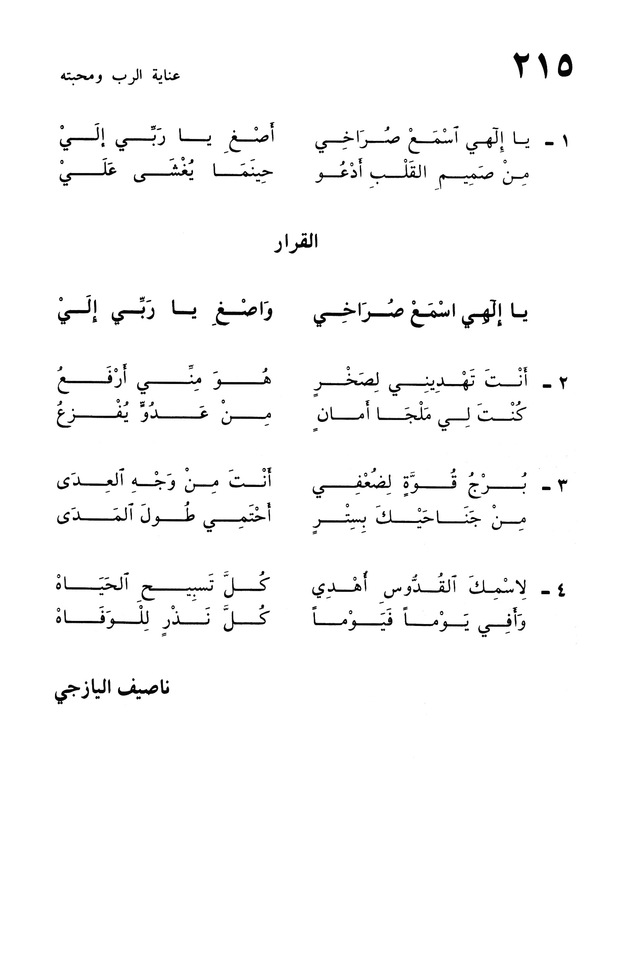 ٢١٥
عناية الرب ومحبته
١ - يا إِلٓهِي ٱسْمَعْ صُرَاخِي أَصْغِ يا رَبِّي إلَيْ
مِنْ صَمِيمِ القَلْبِ أَدْعُو حِينَمَا يُغْشَى عَلَيْ
القرار
يا إِلٓهِي اسْمَعْ صُرَاخِي وَاصْغِ يا رَبِّي إِلَيْ
٢ - أَنْتَ تَهْدِينِي لِصَخْرٍ هُوَ مِنِّي أَرْفَعُ
كُنْتَ لِي مَلْجَا أَمانٍ مِنْ عَدُوٍّ يُفْزِعُ
٣ - بُرْجُ قُوَّةٍ لِضُعْفِي أَنْتَ مِنْ وَجْهِ ٱلعِدَى
مِنْ جَنَاحَيْكَ بِسِتْرٍ أَحْتَمِي طُولَ ٱلمَدَى
٤ - لِاسْمِكَ ٱلقُدُّوسِ أَهْدِي كُلَّ تَسبِيحِ ٱلحَيَاهْ
وَأَفِي يَوْماً فَيَوْماً كُلَّ نَذْرٍ لِلْوَفَاهْ
ناصيف اليازجي